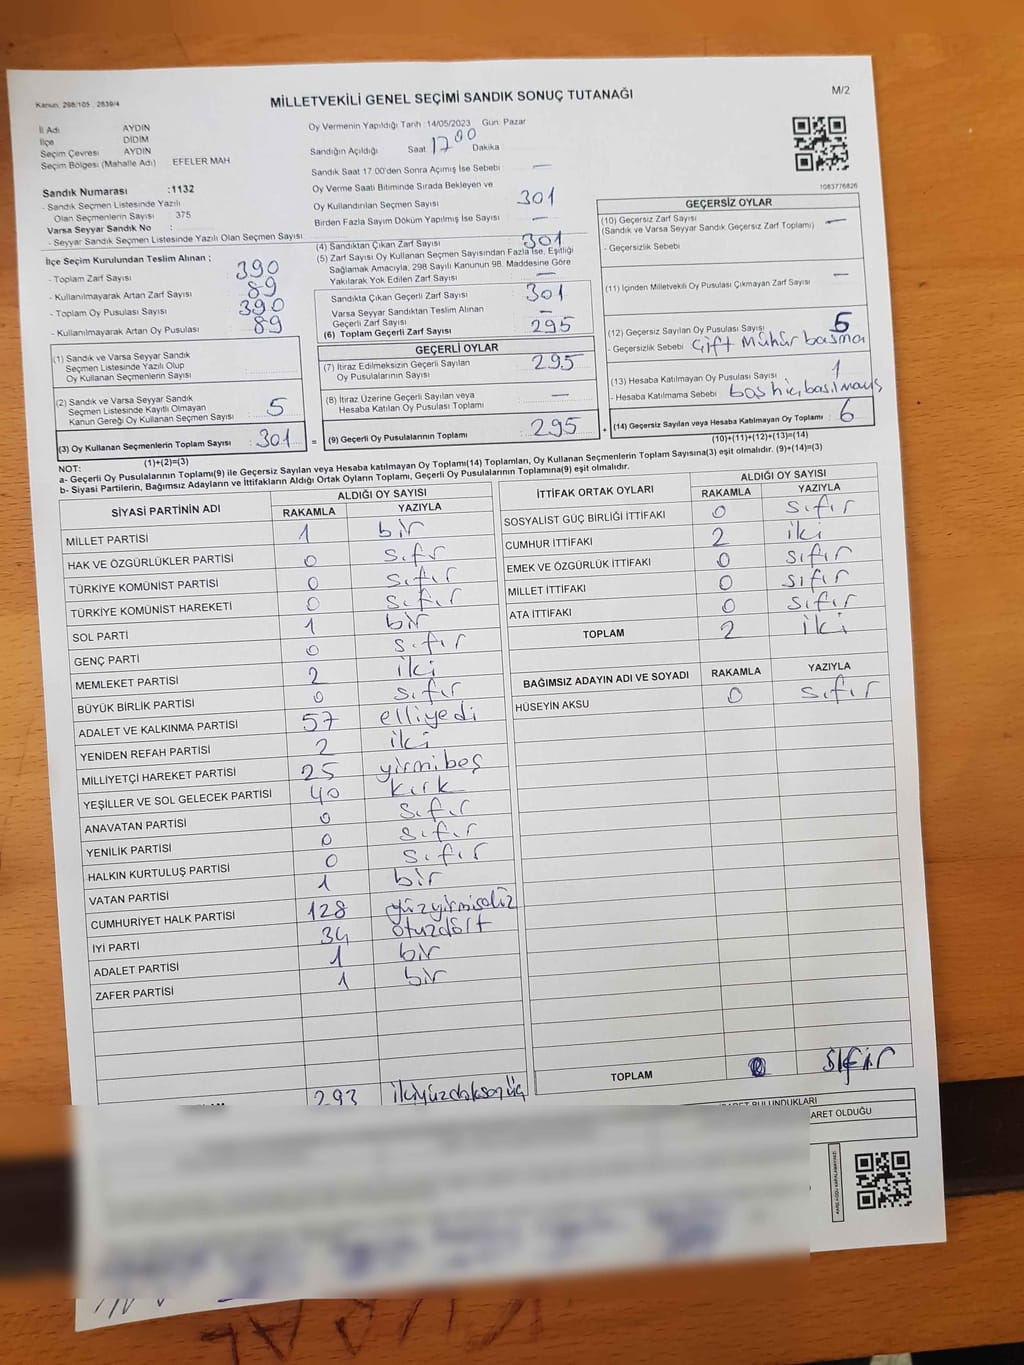 Kanun, 298/105 , 2839/4
MİLLETVEKİLİ GENEL SEÇİMİ SANDIK SONUÇ TUTANAĞI
M/2
İl Adı AYDIN
İlçe DİDİM
Seçim Çevresi AYDIN
Seçim Bölgesi (Mahalle Adı) EFELER MAH
Oy Vermenin Yapıldığı Tarih :14/05/2023 Gün: Pazar
Sandığın Açıldığı Saat 17 00 Dakika
Sandık Saat 17:00'den Sonra Açımış İse Sebebi —
Oy Verme Saati Bitiminde Sırada Bekleyen ve
Oy Kullandırılan Seçmen Sayısı 301
Birden Fazla Sayım Döküm Yapılmış İse Sayısı —
Sandık Numarası :1132
- Sandık Seçmen Listesinde Yazılı
Olan Seçmenlerin Sayısı : 375
Varsa Seyyar Sandık No :
- Seyyar Sandık Seçmen Listesinde Yazılı Olan Seçmen Sayısı
İlçe Seçim Kurulundan Teslim Alınan ;
- Toplam Zarf Sayısı : 390
- Kullanılmayarak Artan Zarf Sayısı : 89
- Toplam Oy Pusulası Sayısı : 390
- Kullanılmayarak Artan Oy Pusulası : 89
(1) Sandık ve Varsa Seyyar Sandık
Seçmen Listesinde Yazılı Olup
Oy Kullanan Seçmenlerin Sayısı
(2) Sandık ve Varsa Seyyar Sandık
Seçmen Listesinde Kayıtlı Olmayan
Kanun Gereği Oy Kullanan Seçmen Sayısı : 5
(3) Oy Kullanan Seçmenlerin Toplam Sayısı : 301
(1)+(2)=(3)
(4) Sandıktan Çıkan Zarf Sayısı 301
(5) Zarf Sayısı Oy Kullanan Seçmen Sayısından Fazla İse, Eşitliği
Sağlamak Amacıyla, 298 Sayılı Kanunun 98. Maddesine Göre
Yakılarak Yok Edilen Zarf Sayısı —
Sandıkta Çıkan Geçerli Zarf Sayısı 301
Varsa Seyyar Sandıktan Teslim Alınan
Geçerli Zarf Sayısı —
(6) Toplam Geçerli Zarf Sayısı 295
GEÇERLİ OYLAR
(7) İtiraz Edilmeksizin Geçerli Sayılan
Oy Pusulalarının Sayısı : 295
(8) İtiraz Üzerine Geçerli Sayılan veya
Hesaba Katılan Oy Pusulası Toplamı : —
= (9) Geçerli Oy Pusulalarının Toplamı : 295
1083776826
GEÇERSİZ OYLAR
(10) Geçersiz Zarf Sayısı
(Sandık ve Varsa Seyyar Sandık Geçersiz Zarf Toplamı) —
- Geçersizlik Sebebi
(11) İçinden Milletvekili Oy Pusulası Çıkmayan Zarf Sayısı : —
(12) Geçersiz Sayılan Oy Pusulası Sayısı : 5
- Geçersizlik Sebebi Çift Mühür basma
(13) Hesaba Katılmayan Oy Pusulası Sayısı : 1
- Hesaba Katılmama Sebebi boş hiç basılmayış
+ (14) Geçersiz Sayılan veya Hesaba Katılmayan Oy Toplamı : 6
(10)+(11)+(12)+(13)=(14)
NOT:
a- Geçerli Oy Pusulalarının Toplamı(9) ile Geçersiz Sayılan veya Hesaba katılmayan Oy Toplamı(14) Toplamları, Oy Kullanan Seçmenlerin Toplam Sayısına(3) eşit olmalıdır. (9)+(14)=(3)
b- Siyasi Partilerin, Bağımsız Adayların ve İttifakların Aldığı Ortak Oyların Toplamı, Geçerli Oy Pusulalarının Toplamına(9) eşit olmalıdır.
SİYASİ PARTİNİN ADI ALDIĞI OY SAYISI
RAKAMLA YAZIYLA
MİLLET PARTİSİ 1 bir
HAK VE ÖZGÜRLÜKLER PARTİSİ 0 sıfır
TÜRKİYE KOMÜNİST PARTİSİ 0 sıfır
TÜRKİYE KOMÜNİST HAREKETİ 0 sıfır
SOL PARTİ 1 bir
GENÇ PARTİ 0 sıfır
MEMLEKET PARTİSİ 2 iki
BÜYÜK BİRLİK PARTİSİ 0 sıfır
ADALET VE KALKINMA PARTİSİ 57 elliyedi
YENİDEN REFAH PARTİSİ 2 iki
MİLLİYETÇİ HAREKET PARTİSİ 25 yirmibeş
YEŞİLLER VE SOL GELECEK PARTİSİ 40 kırk
ANAVATAN PARTİSİ 0 sıfır
YENİLİK PARTİSİ 0 sıfır
HALKIN KURTULUŞ PARTİSİ 0 sıfır
VATAN PARTİSİ 1 bir
CUMHURİYET HALK PARTİSİ 128 yüzyirmisekiz
İYİ PARTİ 34 otuzdört
ADALET PARTİSİ 1 bir
ZAFER PARTİSİ 1 bir
293 ikiyüzdoksanüç
İTTİFAK ORTAK OYLARI ALDIĞI OY SAYISI
RAKAMLA YAZIYLA
SOSYALİST GÜÇ BİRLİĞİ İTTİFAKI 0 sıfır
CUMHUR İTTİFAKI 2 iki
EMEK VE ÖZGÜRLÜK İTTİFAKI 0 sıfır
MİLLET İTTİFAKI 0 sıfır
ATA İTTİFAKI 0 sıfır
TOPLAM 2 iki
BAĞIMSIZ ADAYIN ADI VE SOYADI RAKAMLA YAZIYLA
HÜSEYİN AKSU 0 sıfır
TOPLAM 0 sıfır
BULUNDUKLARI
ARET OLDUĞU